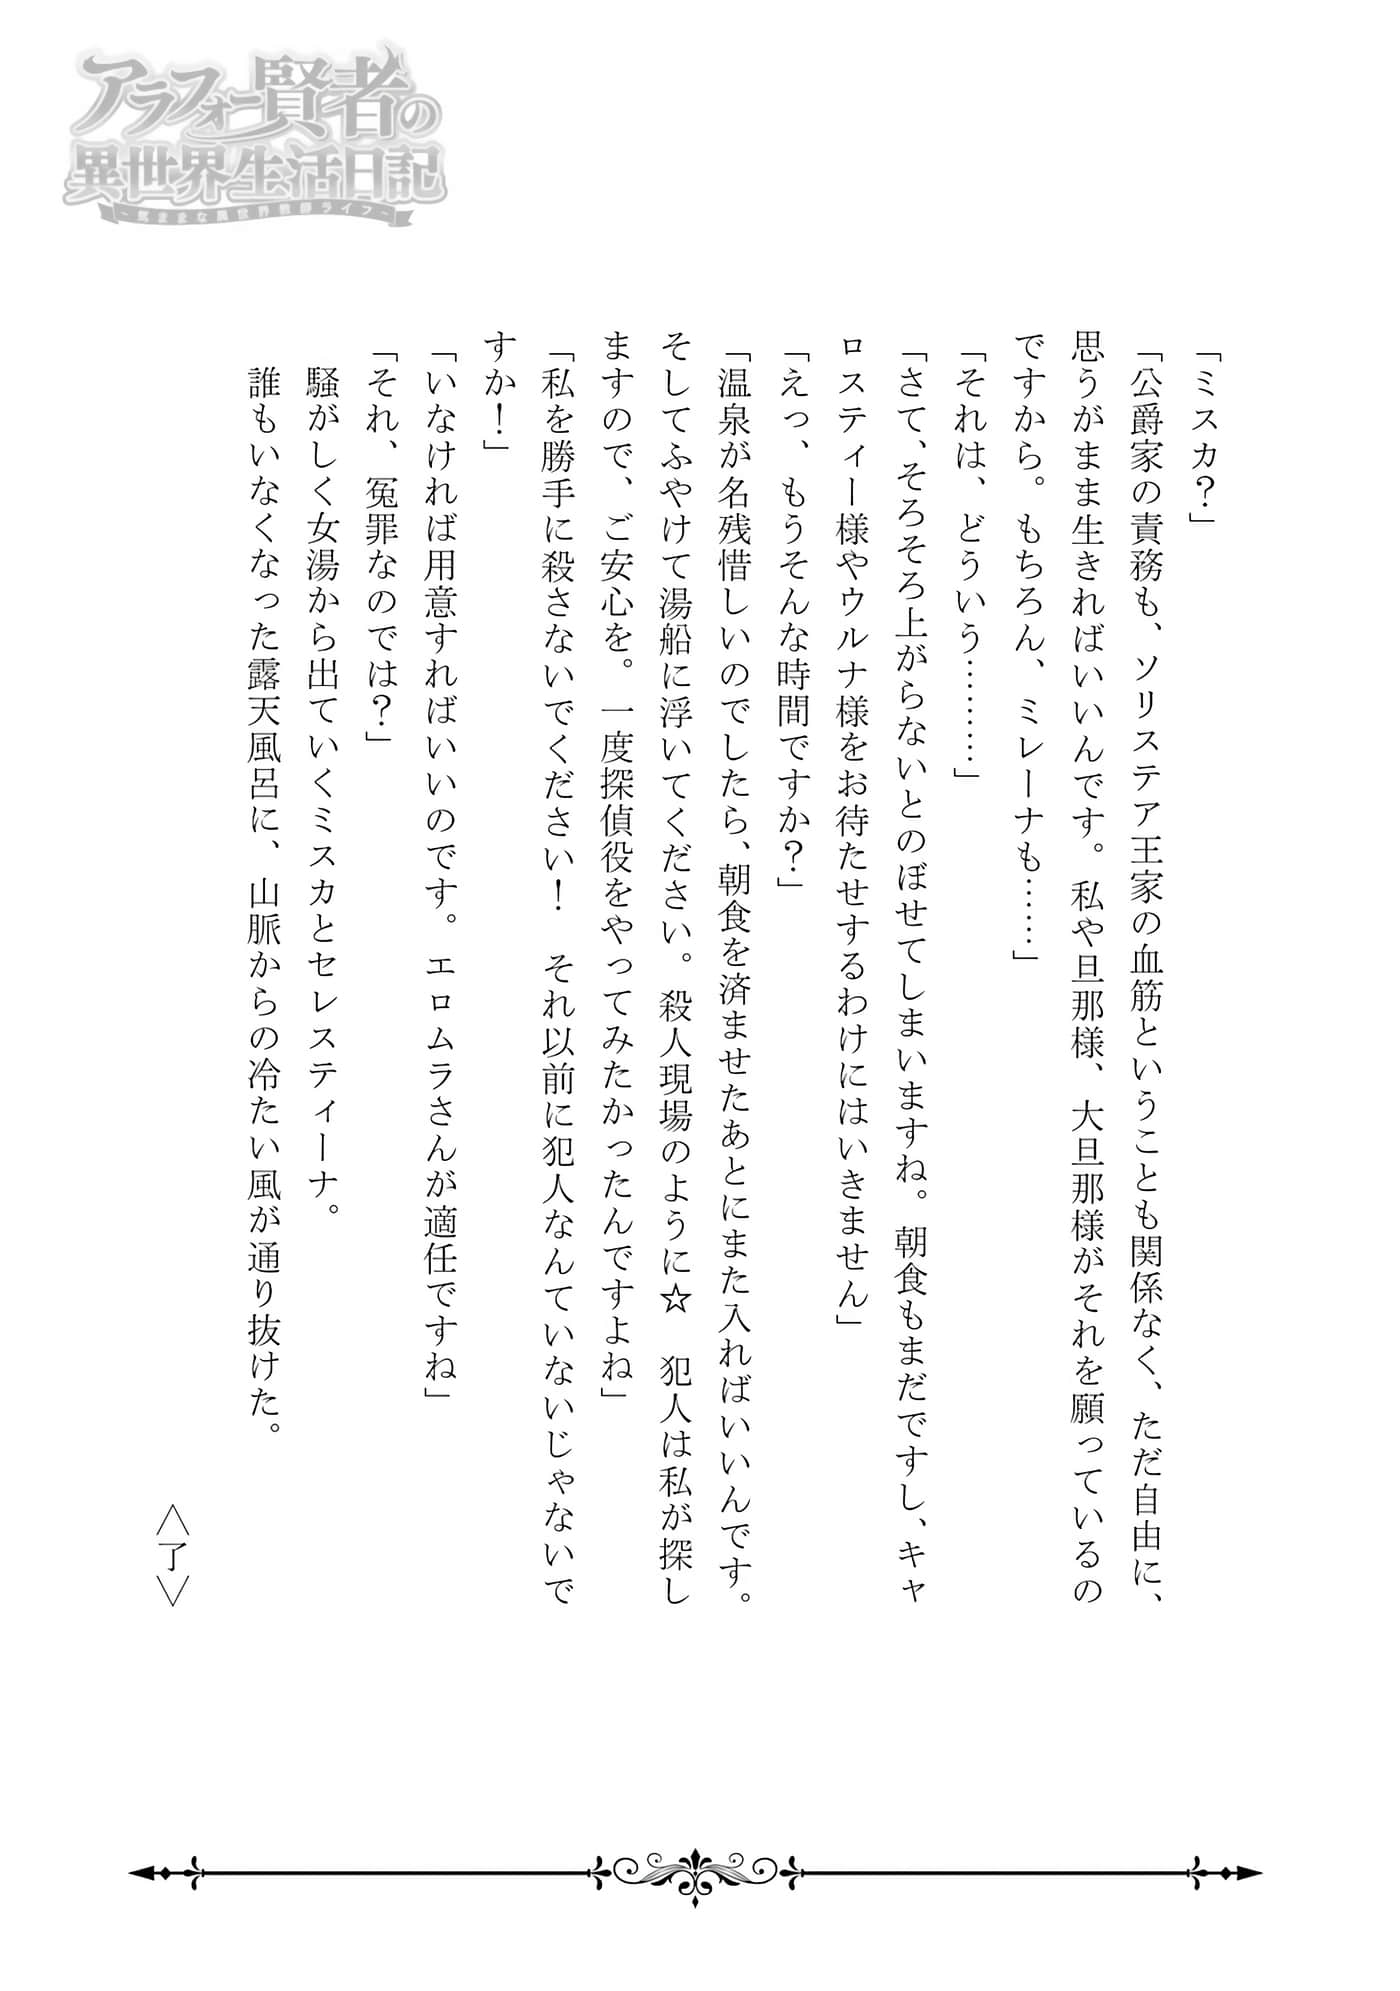 アラフォー賢者の
異世界生活日記
~気ままな異世界教師ライフ~
「ミスカ？」
「公爵家の責務も、ソリステア王家の血筋ということも関係なく、ただ自由に、
思うがまま生きればいいんです。私や旦那様、大旦那様がそれを願っているの
ですから。もちろん、ミレーナも……」
「それは、どういう…………」
「さて、そろそろ上がらないとのぼせてしまいますね。朝食もまだですし、キャ
ロスティー様やウルナ様をお待たせするわけにはいきません」
「えっ、もうそんな時間ですか？」
「温泉が名残惜しいのでしたら、朝食を済ませたあとにまた入ればいいんです。
そしてふやけて湯船に浮いてください。殺人現場のように☆　犯人は私が探し
ますので、ご安心を。一度探偵役をやってみたかったんですよね」
「私を勝手に殺さないでください！　それ以前に犯人なんていないじゃないで
すか！」
「いなければ用意すればいいのです。エロムラさんが適任ですね」
「それ、冤罪なのでは？」
　騒がしく女湯から出ていくミスカとセレスティーナ。
　誰もいなくなった露天風呂に、山脈からの冷たい風が通り抜けた。
＜了＞